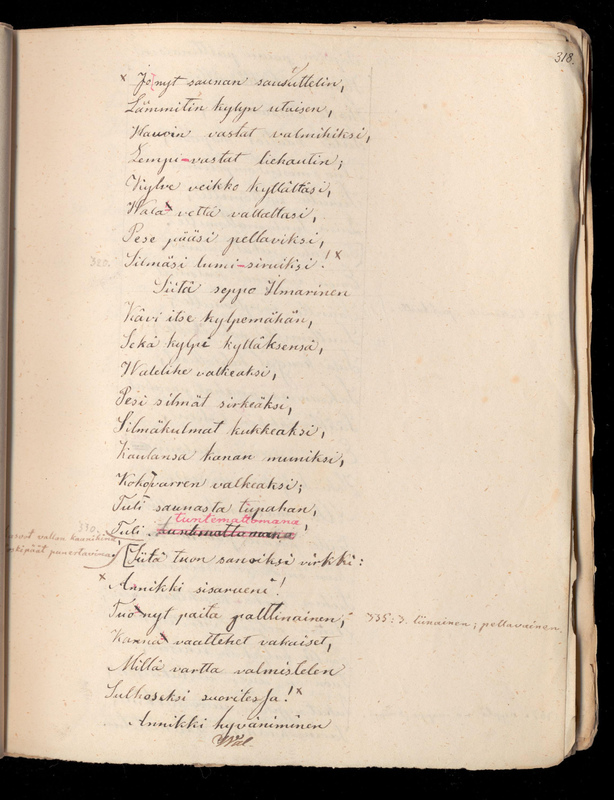 318.
× Jo nyt saunan sausuttelin,
Lämmitin kylyn utuisen,
Hauoin vastat valmihiksi,
Lempi-vastat liehautin;
Kylve veikko kyllältäsi,
Wala vettä vallaltasi,
Pese pääsi pellaviksi,
Silmäsi lumi-siruiksi! ×
Siitä seppo Ilmarinen
Kävi itse kylpemähän,
Sekä kylpi kylläksensä,
Walelihe valkeaksi,
Pesi silmät sirkeäksi,
Silmäkulmat kukkeaksi,
Kaulansa kanan muniksi,
Koko varren valkeaksi;
Tuli saunasta tupahan,
tuntemattomana
330.
Tuli tuntemattomana,
[Siitä tuon sanoiksi virkki:
× Annikki sisarueni!
Tuo nyt paita palttinainen,
335: 3. liinainen; pellavainen.
Kanna vaattehet vakaiset,
Millä vartta valmistelen
Sulhoseksi suoritesſa! ×
Annikki hyväniminen